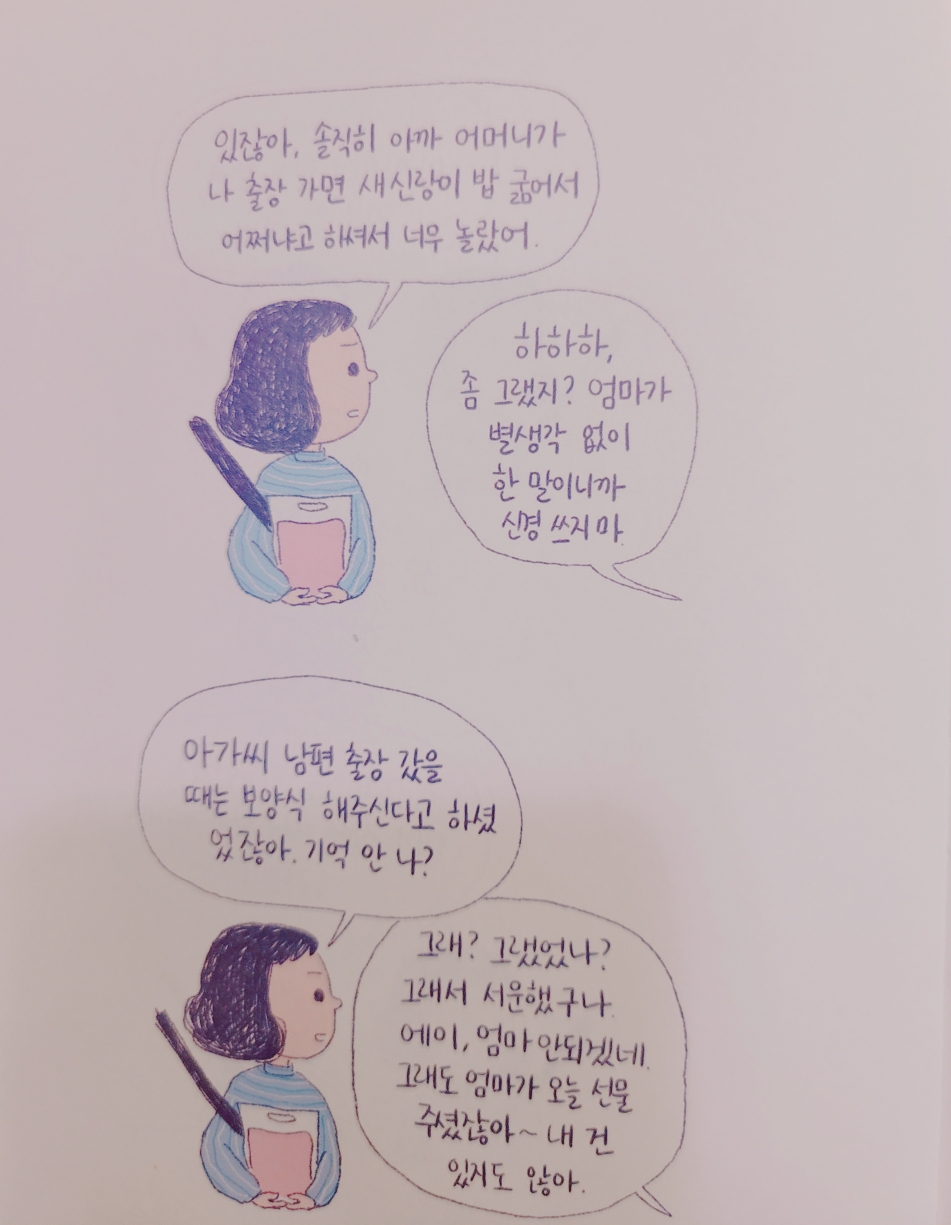 있잖아, 솔직히 아까 어머니가
나 출장 가면 새신랑이 밥 굶어서
어쩌냐고 하셔서 너무 놀랐어.
하하하,
좀 그랬지? 엄마가
별생각 없이
한 말이니까
신경 쓰지 마.
아가씨 남편 출장 갔을
때는 보양식 해주신다고 하셨
었잖아. 기억 안 나?
그래? 그랬었나?
그래서 서운했구나.
에이, 엄마 안되겠네.
그래도 엄마가 오늘 선물
주셨잖아~ 내 건
있지도 않아.